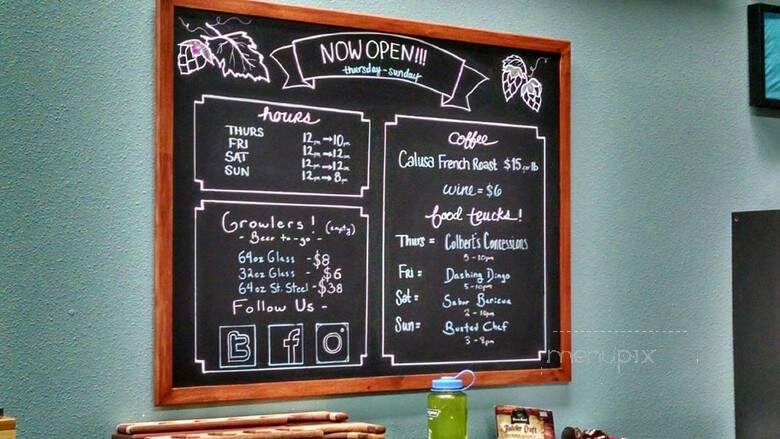 NOW OPEN!!!
thursday - sunday
hours
THURS 12pm → 10pm
FRI 12pm → 12am
SAT 12pm → 12am
SUN 12pm → 8pm
Growlers! (empty)
- Beer to-go -
64oz Glass - $8
32oz Glass - $6
64oz St. Steel - $38
Follow Us -
Coffee
Calusa French Roast $15 per lb
wine = $6
food trucks!
Thurs = Colbert's Concessions
5 - 10pm
Fri = Dashing Dingo
5 - 10pm
Sat = Sabor Boricua
2 - 10pm
Sun = Busted Chef
3 - 8pm
menupix